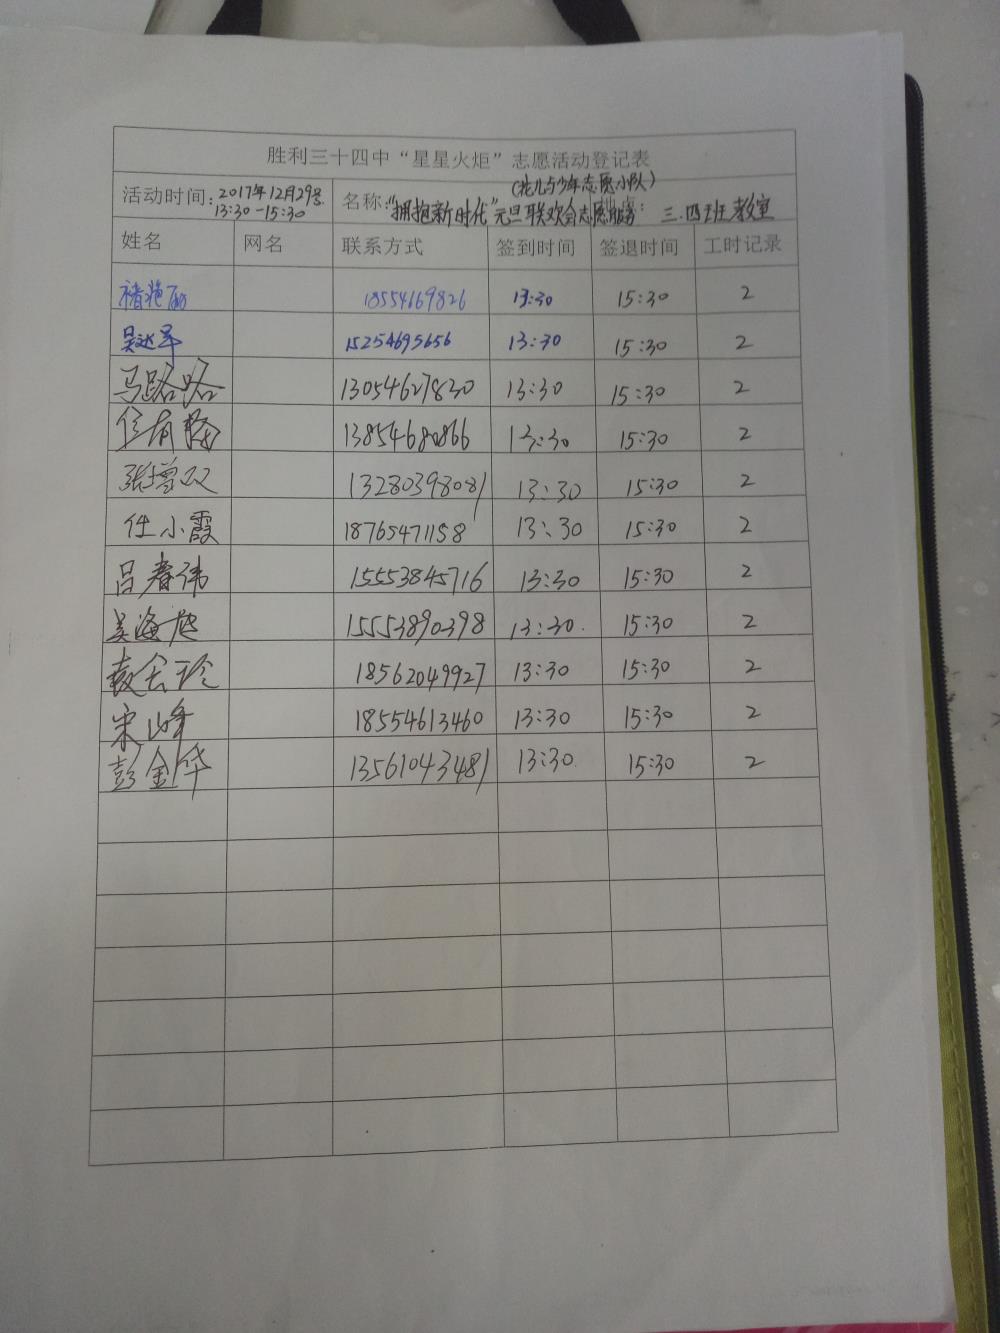 胜利三十四中“星星火炬”志愿活动登记表
活动时间:2017年12月29号 13:30-15:30 名称:“拥抱新时代”元旦联欢会志愿服务 (花儿与少年志愿小队) 三.四班教室
姓名 网名 联系方式 签到时间 签退时间 工时记录
褚艳丽 18554169826 13:30 15:30 2
吴延军 15254695656 13:30 15:30 2
马路路 13054627830 13:30 15:30 2
13854680866 13:30 15:30 2
张增双 13280398081 13:30 15:30 2
任小霞 18765471158 13:30 15:30 2
吕春伟 15553845716 13:30 15:30 2
吴海艳 15553890398 13:30. 15:30 2
袁会玲 18562049927 13:30 15:30 2
宋山峰 18554613460 13:30 15:30 2
彭金华 13561043481 13:30 15:30 2